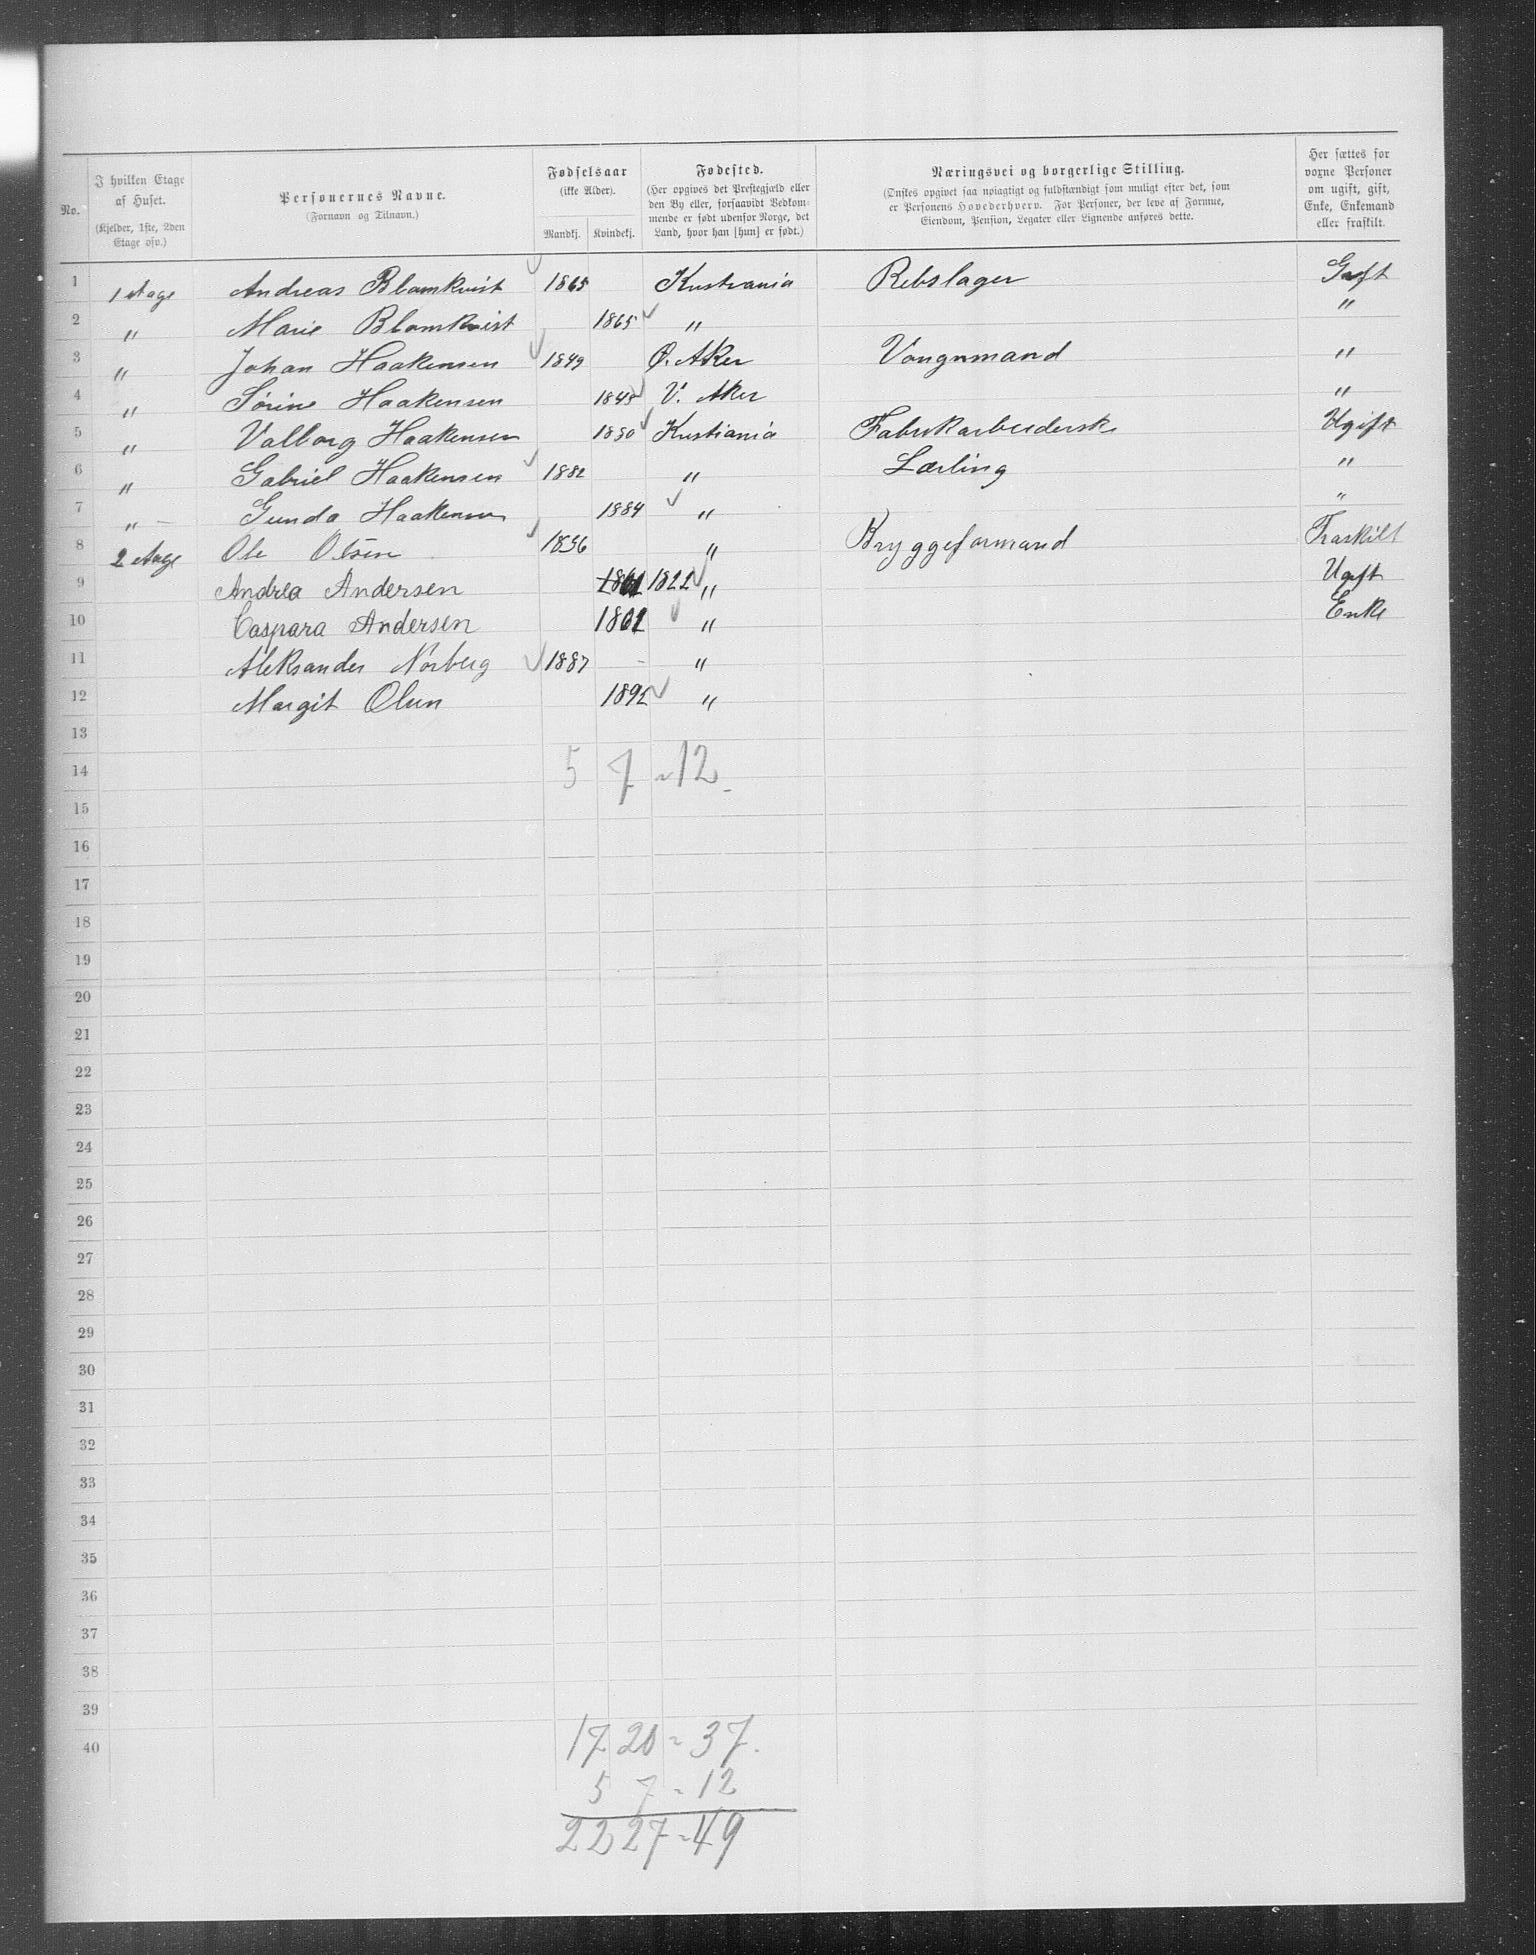 No.
I hvilken Etage af Huset.
(Kjelder, 1ste, 2den Etage osv.)
Personernes Navne.
(Fornavn og Tilnavn.)
Fødselsaar
(ikke Alder).
Mandkj. Kvindekj.
Fødested.
(Her opgives det Prestegjæld eller
den By eller, forsaavidt Vedkom-
mende er født udenfor Norge, det
Land, hvor han [hun] er født.)
Næringsvei og borgerlige Stilling.
(Ønskes opgivet saa nøiagtigt og fuldstændigt som muligt efter det, som
er Personens Hovederhverv. For Personer, der leve af Formue,
Eiendom, Pension, Legater eller Lignende anføres dette.
Her sættes for
voxne Personer
om ugift, gift,
Enke, Enkemand
eller fraskilt.
1 1 Etage Andreas Blomkvist 1865 Kristiania Rebslager Gift
2 " Marie Blomkvist 1865 " "
3 " Johan Haakensen 1849 Ø. Aker Vongnmand "
4 " Sørine Haakensen 1845 V. Aker "
5 " Valborg Haakensen 1880 Kristiania Fabrikarbeiderske Ugift
6 " Gabriel Haakensen 1882 " Lærling "
7 " Gunda Haakensen 1884 " "
8 2 Etage Ole Olsen 1856 " Bryggeformand Fraskilt
9 Andrea Andersen 1822 " Ugift
10 Caspara Andersen 1861 " Enke
11 Aleksander Norberg 1887 "
12 Margit Olsen 1892 "
13
14 5 7 = 12
15
16
17
18
19
20
21
22
23
24
25
26
27
28
29
30
31
32
33
34
35
36
37
38
39
40 17 20 = 37.
5 7 = 12
22 27 = 49